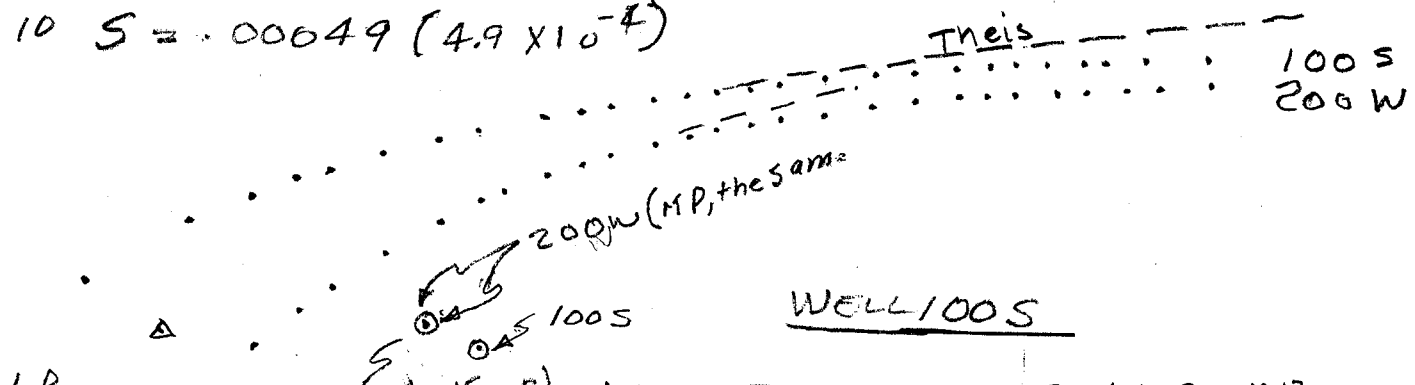 10 S = .00049 (4.9 X10⁻⁴)
Theis
100 S
200 W
200W (MP, the same
100 S
WELL 100 S